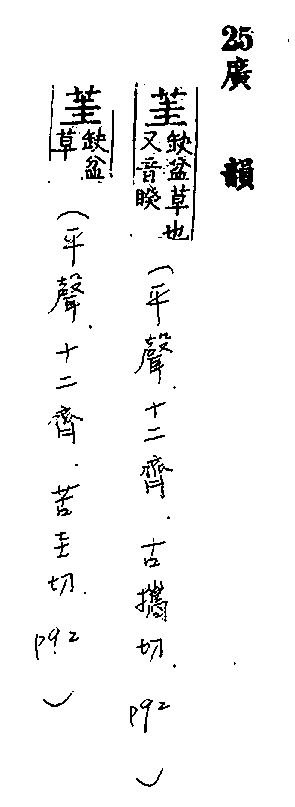 25廣韻
茥
缺盆草也
又音睽
(平聲.十二齊.古攜切.p92)
茥
缺盆
草
(平聲.十二齊.苦圭切.p92)